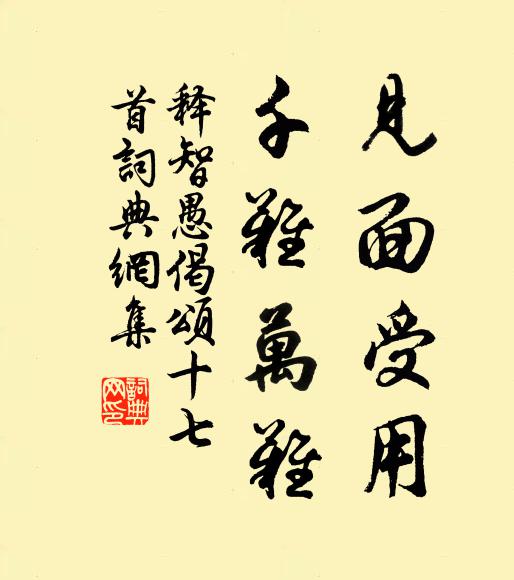 見面受用
千難萬難
释智愚偈頌十七
首詞典網集
詞典
网印